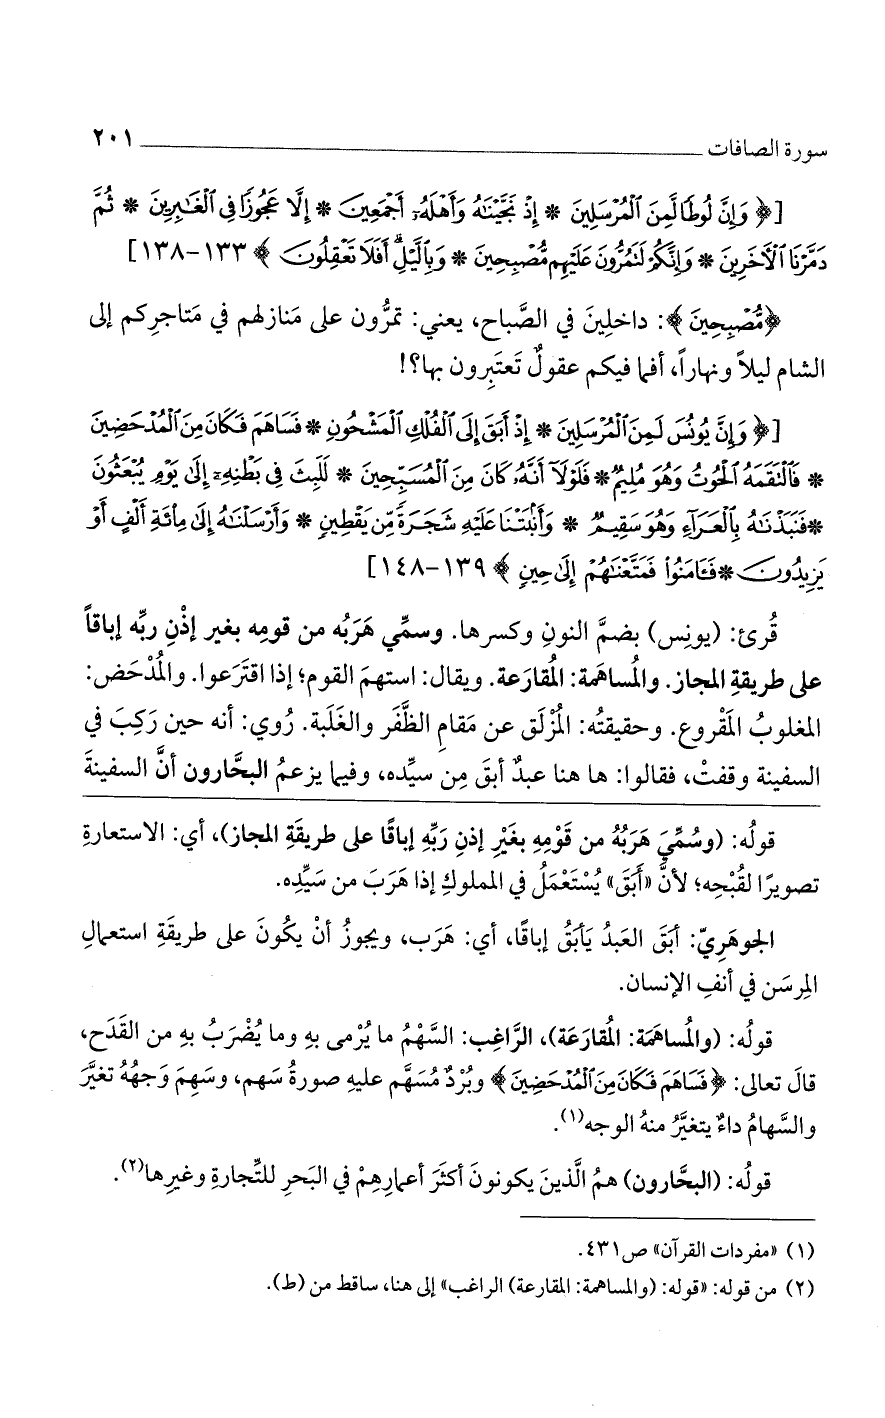 سورة الصافات ٢٠١
[﴿ وَإِنَّ لُوطًا لَّمِنَ الْمُرْسَلِينَ * إِذْ نَجَّيْنَاهُ وَأَهْلَهُ أَجْمَعِينَ * إِلَّا عَجُوزًا فِى الْغَابِرِينَ * ثُمَّ
دَمَّرْنَا الْآخَرِينَ * وَإِنَّكُمْ لَتَمُرُّونَ عَلَيْهِم مُّصْبِحِينَ * وَبِالَّيْلِ أَفَلَا تَعْقِلُونَ ﴾ ١٣٣-١٣٨]
﴿مُّصْبِحِينَ﴾: داخلِينَ في الصَّباح، يعني: تمرُّون على مَنازلهم في مَتاجرِكم إلى
الشام ليلاً ونهاراً، أفما فيكم عقولٌ تَعتَبِرون بها؟!
[﴿ وَإِنَّ يُونُسَ لَمِنَ الْمُرْسَلِينَ * إِذْ أَبَقَ إِلَى الْفُلْكِ الْمَشْحُونِ * فَسَاهَمَ فَكَانَ مِنَ الْمُدْحَضِينَ
* فَالْتَقَمَهُ الْحُوتُ وَهُوَ مُلِيمٌ * فَلَوْلَا أَنَّهُ كَانَ مِنَ الْمُسَبِّحِينَ * لَلَبِثَ فِى بَطْنِهِ إِلَى يَوْمِ يُبْعَثُونَ
* فَنَبَذْنَاهُ بِالْعَرَاءِ وَهُوَ سَقِيمٌ * وَأَنبَتْنَا عَلَيْهِ شَجَرَةً مِّن يَقْطِينٍ * وَأَرْسَلْنَاهُ إِلَى مِائَةِ أَلْفٍ أَوْ
يَزِيدُونَ * فَآمَنُوا فَمَتَّعْنَاهُمْ إِلَى حِينٍ ﴾ ١٣٩-١٤٨]
قُرئ: (يونِس) بضمِّ النونِ وكسرها. وسمِّي هَرَبُه من قومِه بغير إذْنِ ربِّه إباقاً
على طريقةِ المجاز. والمُساهَمة: المُقارَعة. ويقال: استهمَ القوم؛ إذا اقتَرَعوا. والمُدْحَض:
المغلوبُ المَقْروع. وحقيقتُه: المُزْلَق عن مَقامِ الظَّفَر والغَلَبة. رُوي: أنه حين رَكِبَ في
السفينة وقفتْ، فقالوا: ها هنا عبدٌ أبقَ مِن سيِّده، وفيما يزعمُ البحَّارون أنَّ السفينةَ
قولُه: (وسُمِّيَ هَرَبُهُ من قَوْمِهِ بغَيْرِ إذنِ رَبِّهِ إباقًا على طريقَةِ المجاز)، أي: الاستعارةِ
تصويرًا لقُبْحِه؛ لأنَّ «أَبَقَ» يُسْتَعْمَلُ في المملوكِ إذا هَرَبَ من سَيِّدِه.
الجوهَرِيّ: أبَقَ العَبدُ يَأبَقُ إباقًا، أي: هَرَب، ويجوزُ أنْ يكُونَ على طريقَةِ استعمالِ
المِرسَن في أنفِ الإنسان.
قولُه: (والمُساهَمَة: المُقارَعَة)، الرَّاغِب: السَّهْمُ ما يُرْمى بهِ وما يُضْرَبُ بهِ من القَدَح،
قالَ تعالى: ﴿فَسَاهَمَ فَكَانَ مِنَ الْمُدْحَضِينَ﴾ وبُرْدٌ مُسَهَّم عليهِ صورةُ سَهم، وسَهِمَ وَجهُهُ تغيَّرَ
والسَّهامُ داءٌ يتغيَّرُ منهُ الوجه(١).
قولُه: (البحَّارون) همُ الَّذينَ يكونونَ أكثَرَ أعمارِهِمْ في البَحرِ للتِّجارةِ وغيرِها(٢).
(١) «مفردات القرآن» ص٤٣١.
(٢) من قوله: «قوله: (والمساهمة: المقارعة) الراغب» إلى هنا، ساقط من (ط).